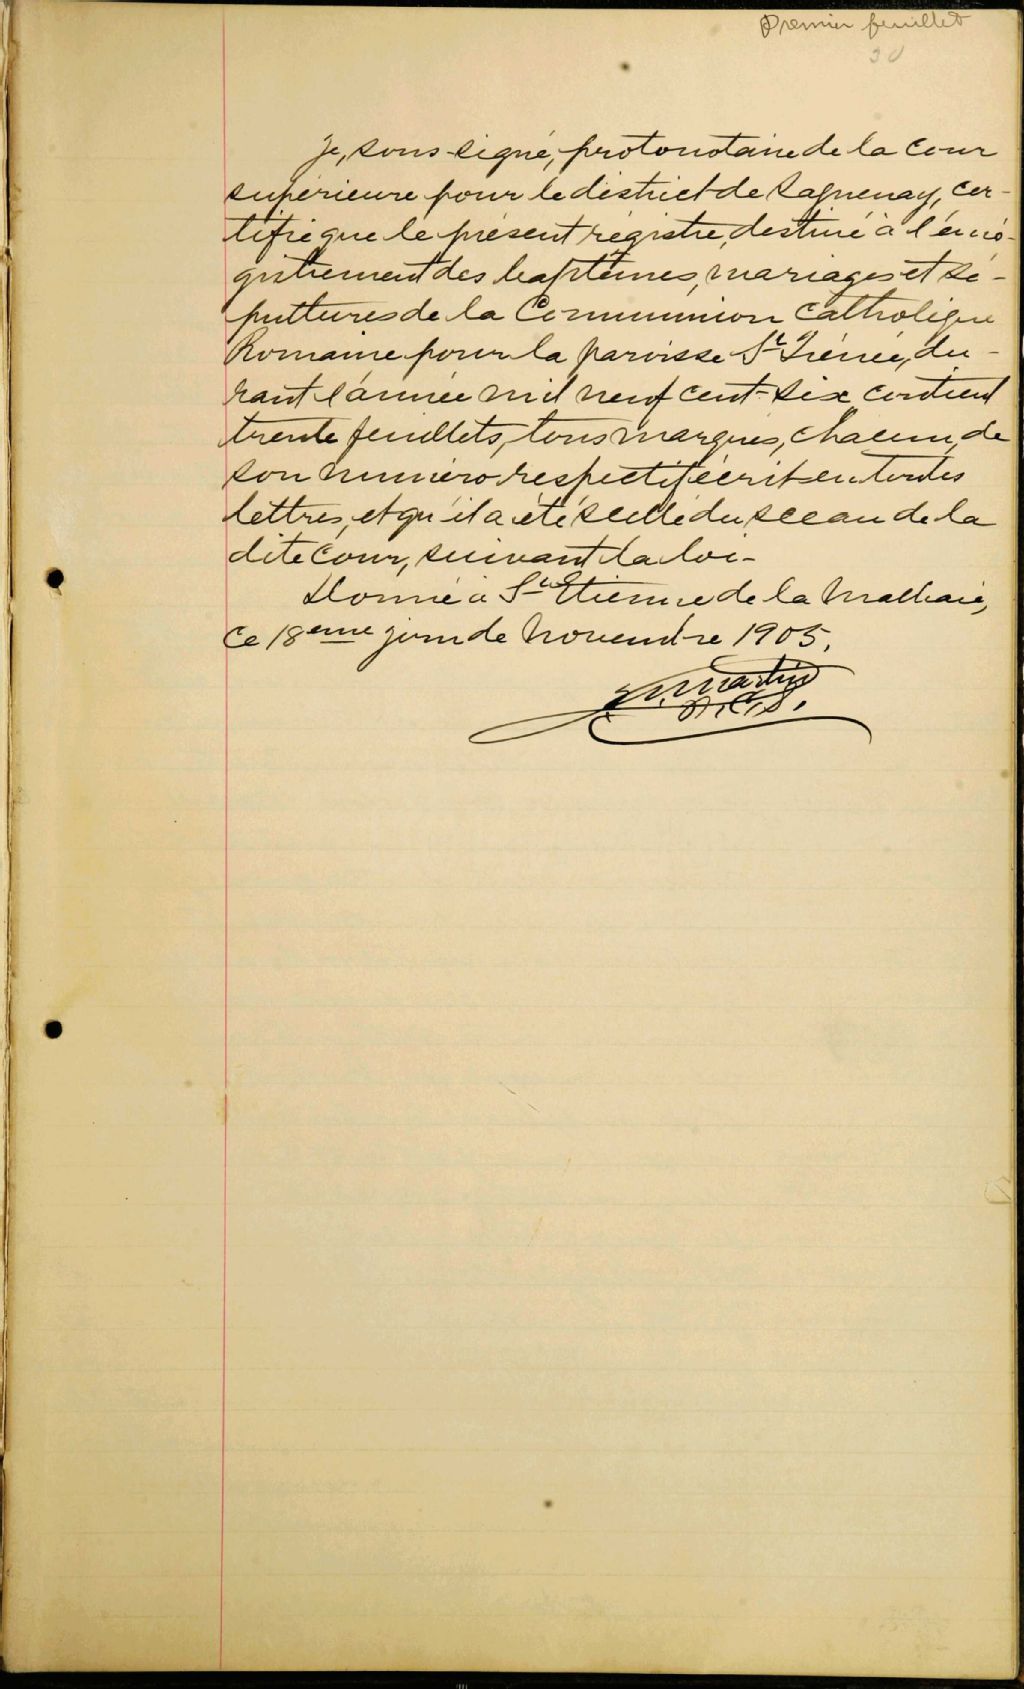 Premier feuillet
30
Je, sous-signé, protonotaire de la Cour
supérieure pour le district de Saguenay, cer-
tifie que le présent régistre, destiné à l'enré-
gistrement des baptêmes, mariages et sé-
pultures de la Communion Catholique
Romaine pour la paroisse St Irénée, du-
rant l'année mil neuf cent-six contient
trente feuillets, tous marqués, chacun, de
son numéro respectif écrit en toutes
lettres, et qu'il a été scellé du sceau de la
dite Cour, suivant la loi-
Donné à St Etienne de la Malbaie,
ce 18eme jour de Novembre 1905.
Martin
P.C.S.